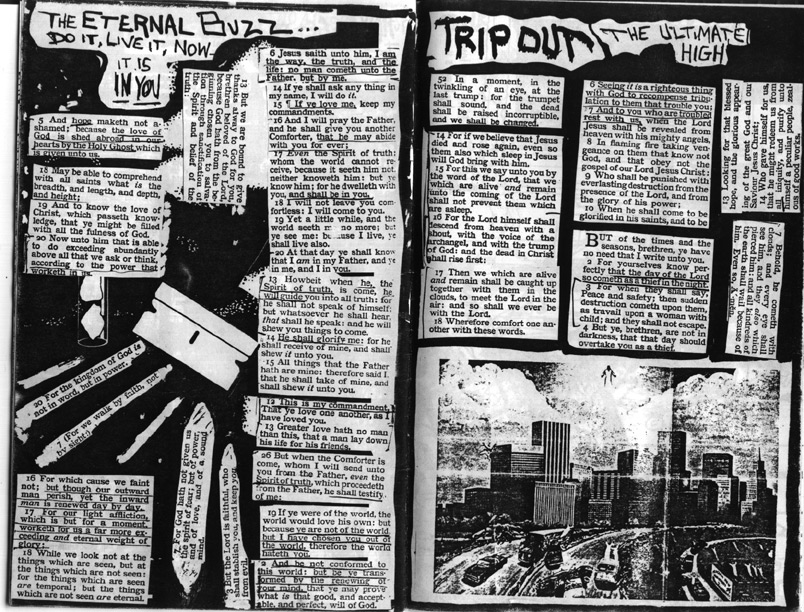 THE ETERNAL BUZZ...
DO IT, LIVE IT, NOW-
IT IS
IN YOU
5 And hope maketh not a-
shamed; because the love of
God is shed abroad in our
hearts by the Holy Ghost which
is given unto us.
18 May be able to comprehend
with all saints what is the
breadth, and length, and depth,
and height;
19 And to know the love of
Christ, which passeth know-
ledge, that ye might be filled
with all the fulness of God.
20 Now unto him that is able
to do exceeding abundantly
above all that we ask or think,
according to the power that
worketh in us.
13 But we are bound to give
thanks alway to God for you,
brethren beloved of the Lord,
because God hath from the be-
ginning chosen you to salva-
tion through sanctification of
the Spirit and belief of the
truth:
20 For the kingdom of God is
not in word, but in power.
7 (For we walk by faith, not
by sight:)
16 For which cause we faint
not; but though our outward
man perish, yet the inward
man is renewed day by day.
17 For our light affliction,
which is but for a moment,
worketh for us a far more ex-
ceeding and eternal weight of
glory;
18 While we look not at the
things which are seen, but at
the things which are not seen:
for the things which are seen
are temporal; but the things
which are not seen are eternal.
7 For God hath not given us
the spirit of fear; but of power,
and of love, and of a sound
mind.
3 But the Lord is faithful, who
shall stablish you, and keep you
from evil.
6 Jesus saith unto him, I am
the way, the truth, and the
life: no man cometh unto the
Father, but by me.
14 If ye shall ask any thing in
my name, I will do it.
15 ¶ If ye love me, keep my
commandments.
16 And I will pray the Father,
and he shall give you another
Comforter, that he may abide
with you for ever;
17 Even the Spirit of truth;
whom the world cannot re-
ceive, because it seeth him not,
neither knoweth him: but ye
know him; for he dwelleth with
you, and shall be in you.
18 I will not leave you com-
fortless: I will come to you.
19 Yet a little while, and the
world seeth me no more; but
ye see me: because I live, ye
shall live also.
20 At that day ye shall know
that I am in my Father, and ye
in me, and I in you.
13 Howbeit when he, the
Spirit of truth, is come, he
will guide you into all truth: for
he shall not speak of himself;
but whatsoever he shall hear,
that shall he speak: and he will
shew you things to come.
14 He shall glorify me: for he
shall receive of mine, and shall
shew it unto you.
15 All things that the Father
hath are mine: therefore said I,
that he shall take of mine, and
shall shew it unto you.
12 This is my commandment,
That ye love one another, as I
have loved you.
13 Greater love hath no man
than this, that a man lay down
his life for his friends.
26 But when the Comforter is
come, whom I will send unto
you from the Father, even the
Spirit of truth, which proceedeth
from the Father, he shall testify
of me:
19 If ye were of the world, the
world would love his own: but
because ye are not of the world,
but I have chosen you out of
the world, therefore the world
hateth you.
2 And be not conformed to
this world: but be ye trans-
formed by the renewing of
your mind, that ye may prove
what is that good, and accept-
able, and perfect, will of God.
TRIP OUT
THE ULTIMATE
HIGH
52 In a moment, in the
twinkling of an eye, at the
last trump: for the trumpet
shall sound, and the dead
shall be raised incorruptible,
and we shall be changed.
14 For if we believe that Jesus
died and rose again, even so
them also which sleep in Jesus
will God bring with him.
15 For this we say unto you by
the word of the Lord, that we
which are alive and remain
unto the coming of the Lord
shall not prevent them which
are asleep.
16 For the Lord himself shall
descend from heaven with a
shout, with the voice of the
archangel, and with the trump
of God: and the dead in Christ
shall rise first:
17 Then we which are alive
and remain shall be caught up
together with them in the
clouds, to meet the Lord in the
air: and so shall we ever be
with the Lord.
18 Wherefore comfort one an-
other with these words.
6 Seeing it is a righteous thing
with God to recompense tribu-
lation to them that trouble you;
7 And to you who are troubled
rest with us, when the Lord
Jesus shall be revealed from
heaven with his mighty angels,
8 In flaming fire taking ven-
geance on them that know not
God, and that obey not the
gospel of our Lord Jesus Christ:
9 Who shall be punished with
everlasting destruction from the
presence of the Lord, and from
the glory of his power;
10 When he shall come to be
glorified in his saints, and to be
BUT of the times and the
seasons, brethren, ye have
no need that I write unto you.
2 For yourselves know per-
fectly that the day of the Lord
so cometh as a thief in the night.
3 For when they shall say,
Peace and safety; then sudden
destruction cometh upon them,
as travail upon a woman with
child; and they shall not escape.
4 But ye, brethren, are not in
darkness, that that day should
overtake you as a thief.
13 Looking for that blessed
hope, and the glorious appear-
ing of the great God and our
Saviour Jesus Christ;
14 Who gave himself for us,
that he might redeem us from
all iniquity, and purify unto
himself a peculiar people, zeal-
ous of good works.
7 Behold, he cometh with
clouds; and every eye shall
see him, and they also which
pierced him: and all kindreds of
the earth shall wail because of
him. Even so, Amen.